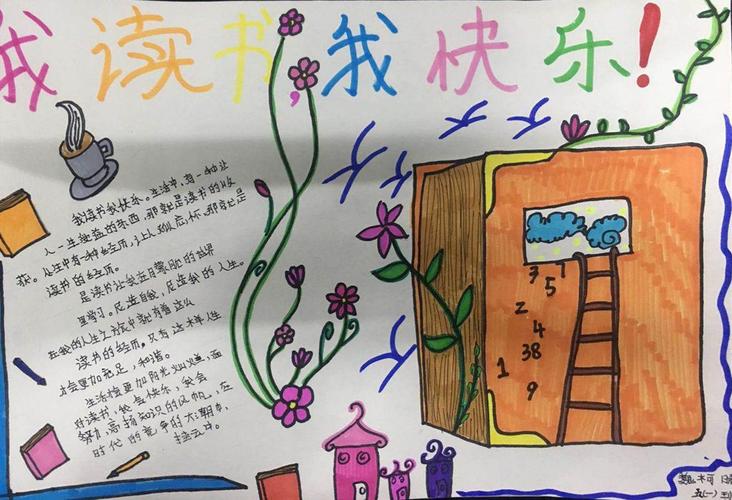 我读书,我快乐!
我读书我快乐。生活中,有一种让
人一生受益的东西,那就是读书的收
获。人生中有一种经历,让人刻骨怀,那就是
读书的经历。
是读书让我在月蒙胧的世界
里学习。是读书,是连我的人生。
在我的人生之旅中就有着这么
读书的经历。只有这样人生
才会更加充足,和谐。
生活檀更加阳光灿烂,面
对读书,我会快乐,我会
努力高扬知识的风帆,在
时代的竞争的大潮中,
击云中。
3 1
5
2
4
38
1
9
五(一)班